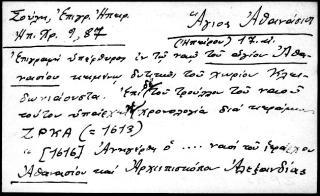 Σούλη, Ἐπιγρ. Ἠπειρ. Ἅγιος Ἀθανάσιος
Ἠπ. Χρ. 9, 87 (Ἠπείρου) 17. αἰ.
Ἐπιγραφὴ ὑπέρθυρος ἐν τῷ ναῷ τοῦ ἁγίου Ἀθα-
νασίου κειμένῳ δυτικῶς τοῦ χωρίου Κλει-
δωνιάουστα. Ἐπὶ τοῦ τρούλλου τοῦ ναοῦ
τούτου ὑπάρχει χρονολογία διὰ κεράμων
ΖΡΚΑ (= 1613)
"[1616] Ἀνηγέρθη ὁ .... ναὸς τοῦ ἱεράρχου
Ἀθανασίου καὶ Ἀρχιεπισκόπου Ἀλεξανδρίας